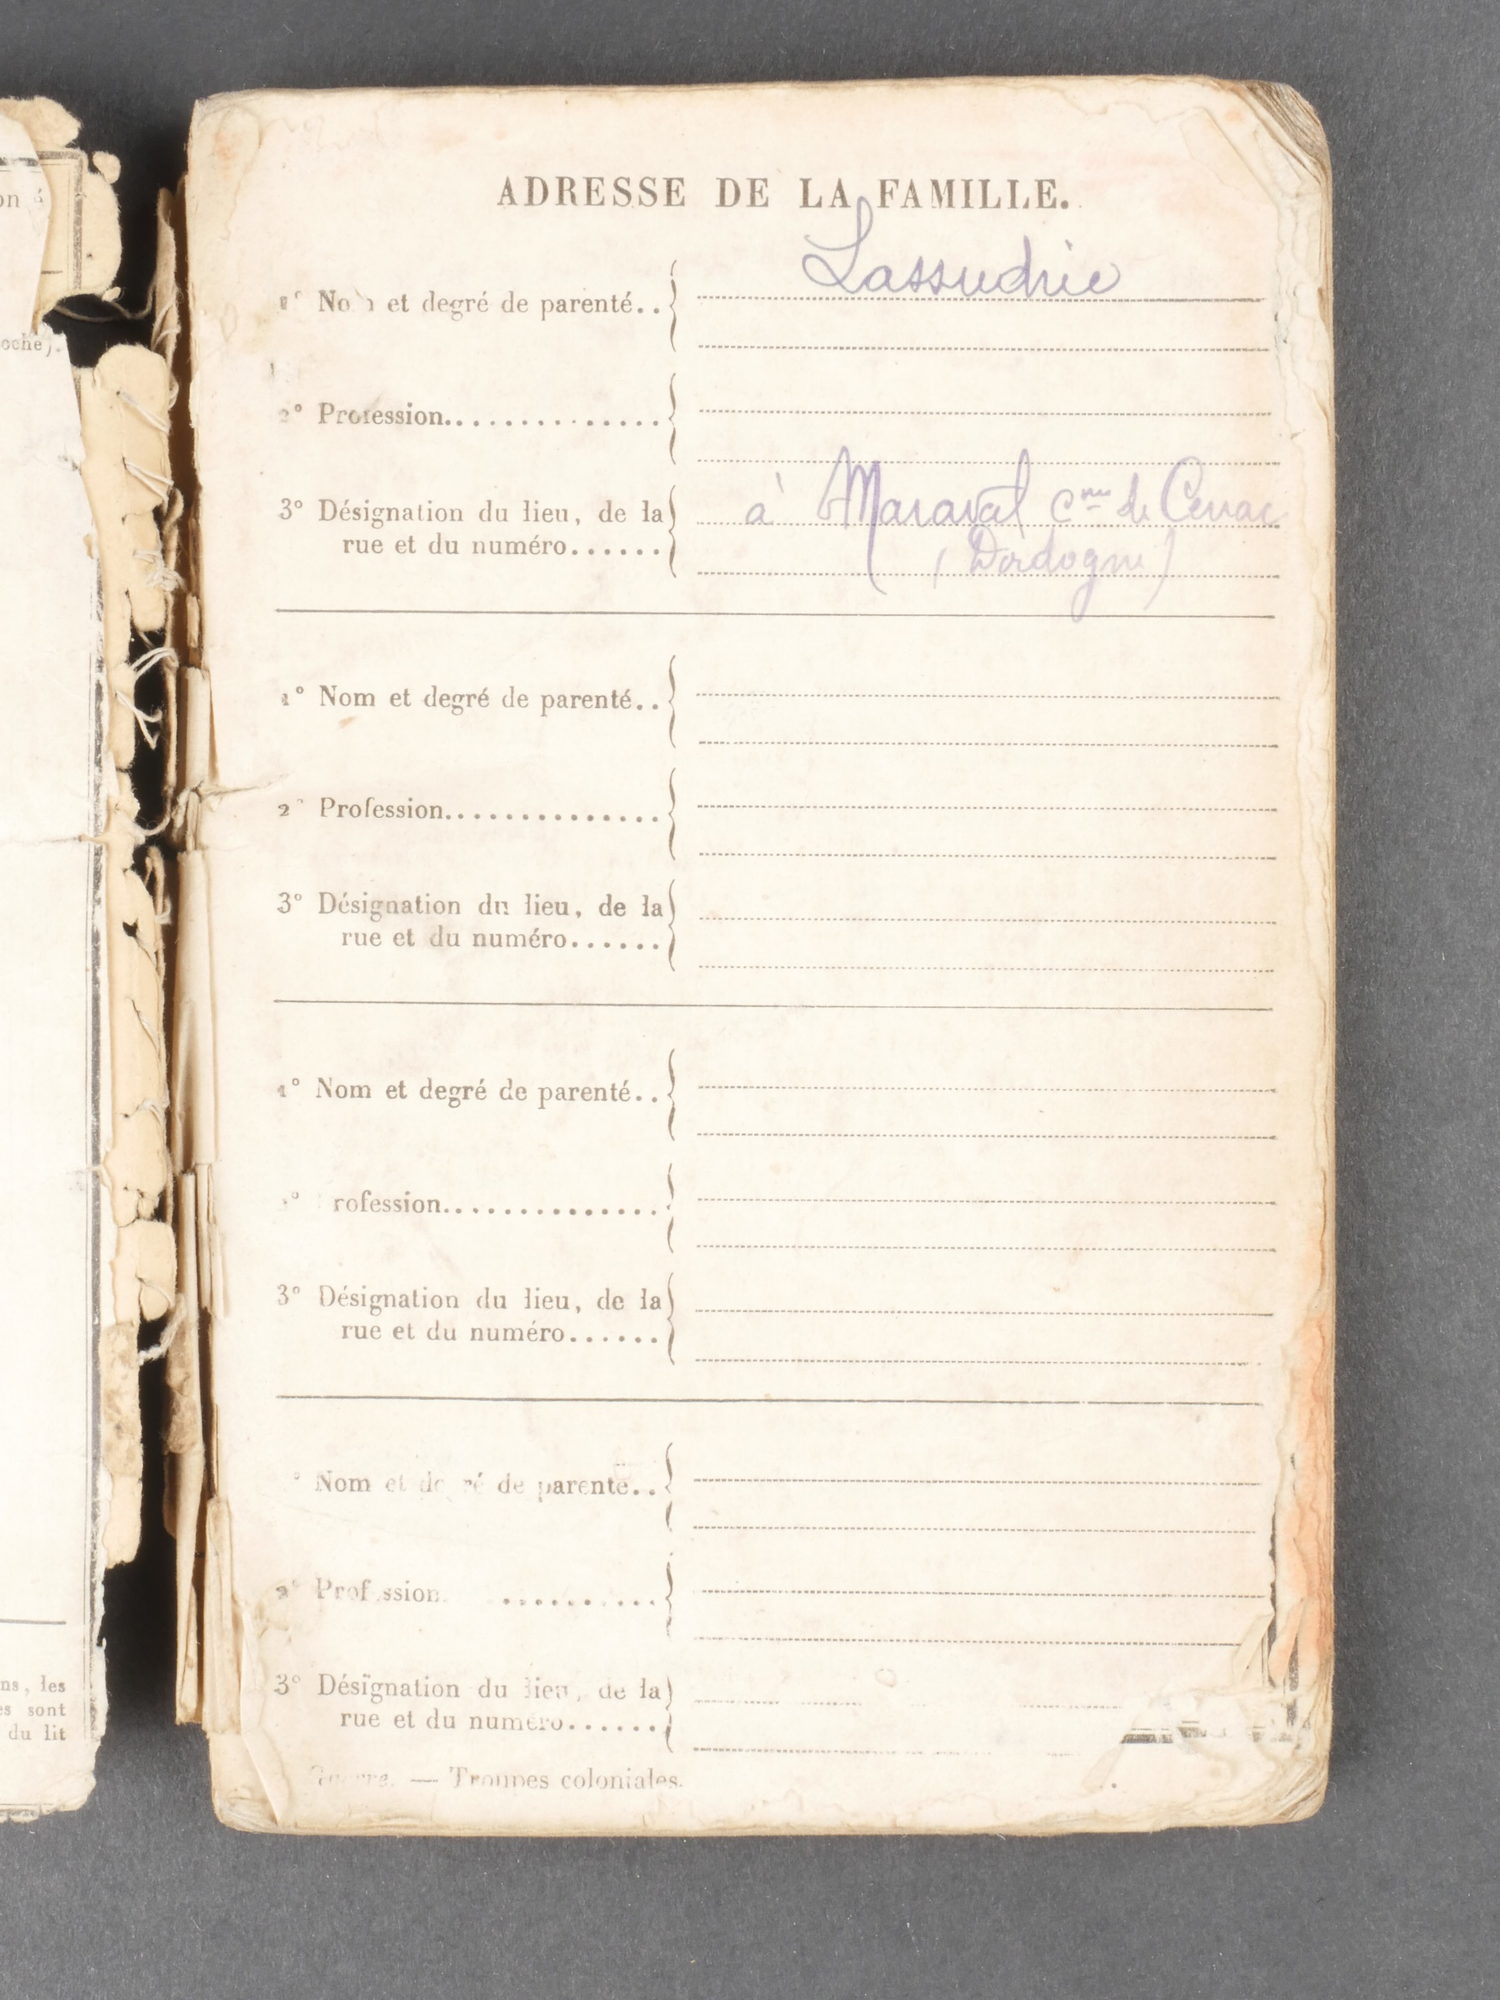 on
oche).
ns, les
es sont
du lit
ADRESSE DE LA FAMILLE.
Nom et degré de parenté.. Lassudrie
2° Profession..............
3° Désignation du lieu, de la à Maraval cne de Cenac
rue et du numéro...... (Dordogne)
1° Nom et degré de parenté..
2° Profession..............
3° Désignation du lieu, de la
rue et du numéro......
1° Nom et degré de parenté..
rofession..............
3° Désignation du lieu, de la
rue et du numéro......
Nom et degré de parenté..
2° Profession ..........
3° Désignation du lieu, de la
rue et du numéro......
Guerre. — Troupes coloniales.